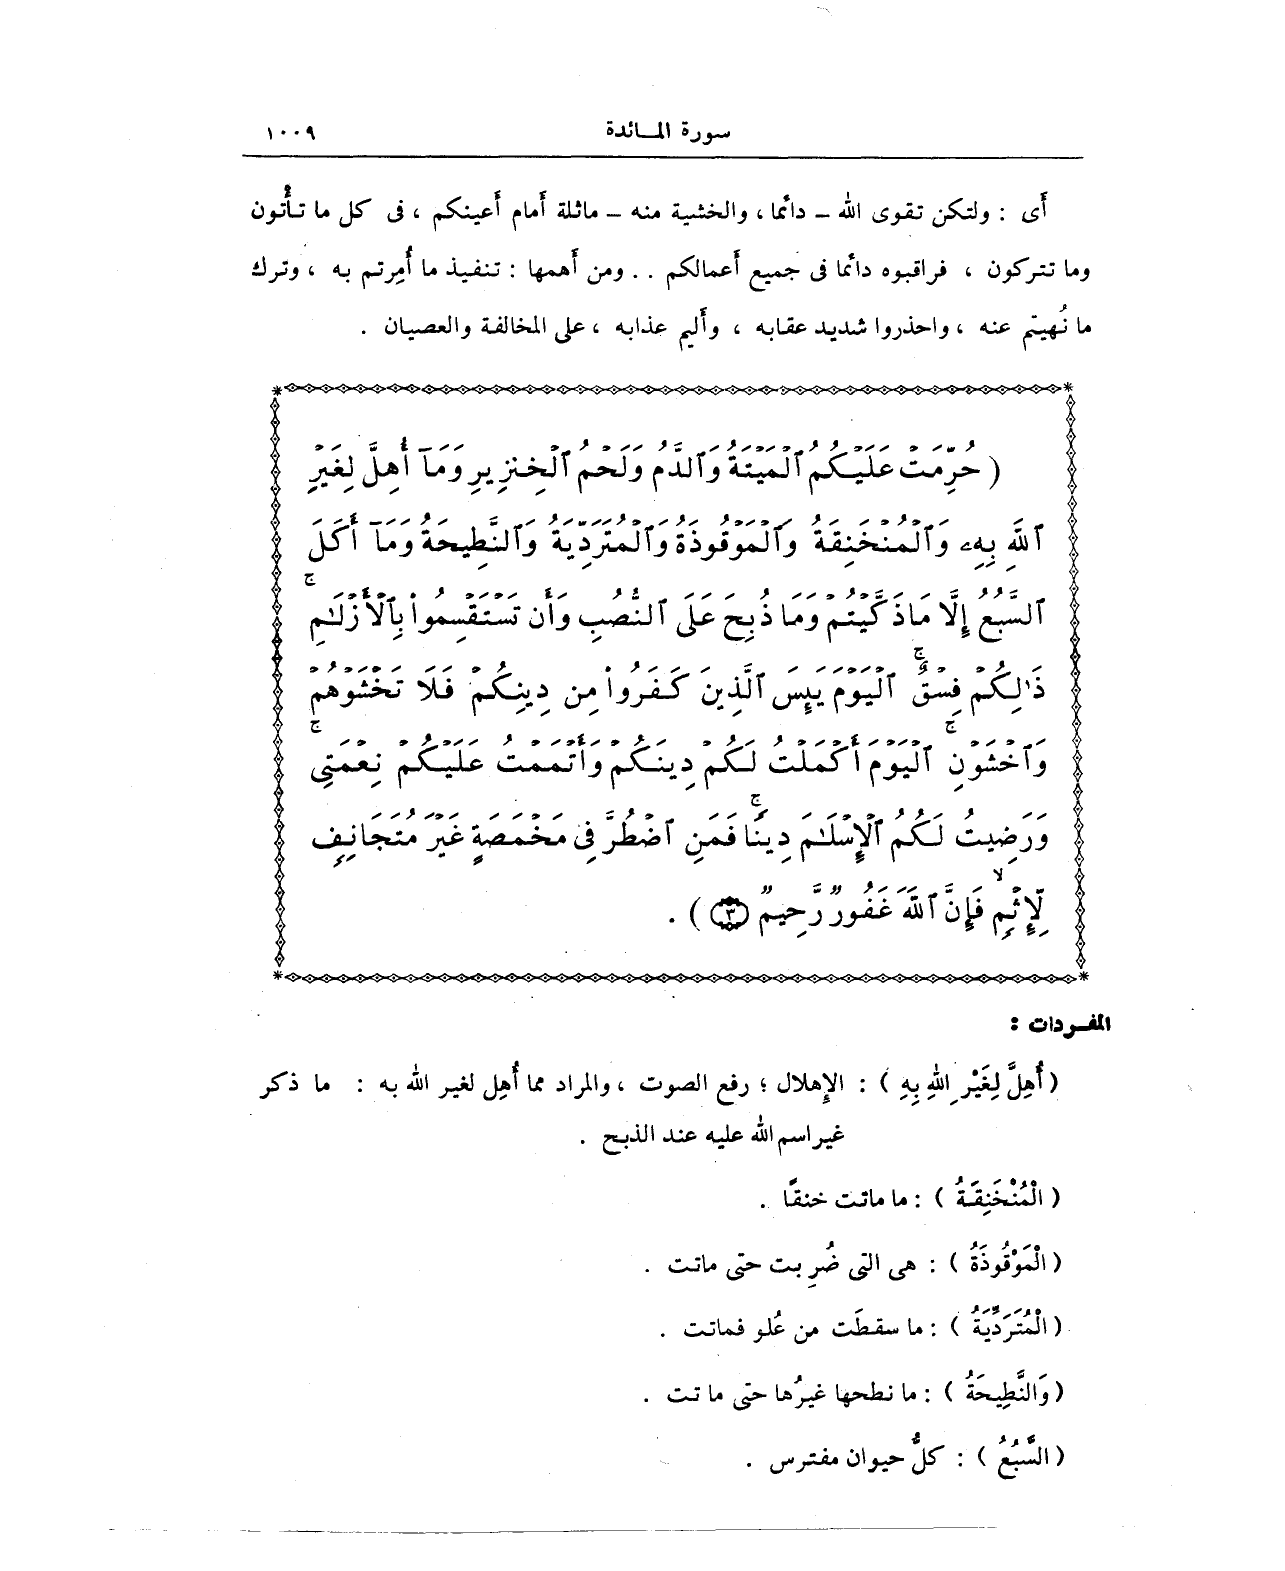 سورة المائدة ١٠٠٩
أَى : ولتكن تقوى الله – دائمًا ، والخشية منه – ماثلة أمام أعينكم ، فى كل ما تأْتون
وما تتركون ، فراقبوه دائمًا فى جميع أعمالكم . . ومن أَهمها : تنفيذ ما أُمِرتم به ، وترك
ما نُهيتم عنه ، واحذروا شديد عقابه ، وأَليم عذابه ، على المخالفة والعصيان .
( حُرِّمَتْ عَلَيْكُمُ ٱلْمَيْتَةُ وَٱلدَّمُ وَلَحْمُ ٱلْخِنزِيرِ وَمَآ أُهِلَّ لِغَيْرِ
ٱللَّهِ بِهِۦ وَٱلْمُنْخَنِقَةُ وَٱلْمَوْقُوذَةُ وَٱلْمُتَرَدِّيَةُ وَٱلنَّطِيحَةُ وَمَآ أَكَلَ
ٱلسَّبُعُ إِلَّا مَا ذَكَّيْتُمْ وَمَا ذُبِحَ عَلَى ٱلنُّصُبِ وَأَن تَسْتَقْسِمُوا۟ بِٱلْأَزْلَٰمِ ۚ
ذَٰلِكُمْ فِسْقٌ ۗ ٱلْيَوْمَ يَئِسَ ٱلَّذِينَ كَفَرُوا۟ مِن دِينِكُمْ فَلَا تَخْشَوْهُمْ
وَٱخْشَوْنِ ۚ ٱلْيَوْمَ أَكْمَلْتُ لَكُمْ دِينَكُمْ وَأَتْمَمْتُ عَلَيْكُمْ نِعْمَتِى
وَرَضِيتُ لَكُمُ ٱلْإِسْلَٰمَ دِينًا ۚ فَمَنِ ٱضْطُرَّ فِى مَخْمَصَةٍ غَيْرَ مُتَجَانِفٍ
لِّإِثْمٍ ۙ فَإِنَّ ٱللَّهَ غَفُورٌ رَّحِيمٌ ﴿٣﴾ ) .
المفردات :
( أُهِلَّ لِغَيْرِ اللهِ بِهِ ) : الإِهلال ؛ رفع الصوت ، والمراد مما أُهل لغير الله به : ما ذكر
غير اسم الله عليه عند الذبح .
( الْمُنْخَنِقَةُ ) : ما ماتت خنقًا .
( الْمَوْقُوذَةُ ) : هى التى ضُرِبت حتى ماتت .
( الْمُتَرَدِّيَةُ ) : ما سقطَت من عُلو فماتت .
( وَالنَّطِيحَةُ ) : ما نطحها غيرُها حتى ماتت .
( السَّبُعُ ) : كلُّ حيوان مفترس .